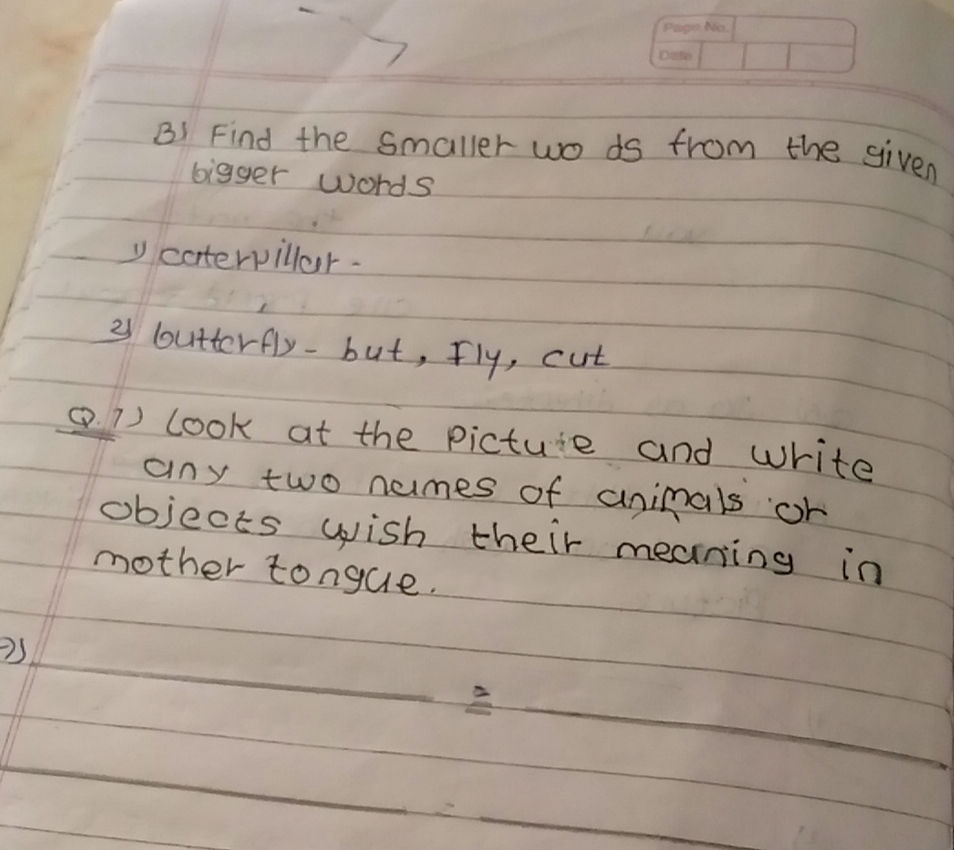 Page No.
Date
B) Find the smaller wo ds from the given
bigger words
1) caterpillar -
2) butterfly - but, fly, cut
Q.1) Look at the picture and write
any two names of animals or
objects wish their meaning in
mother tongue.